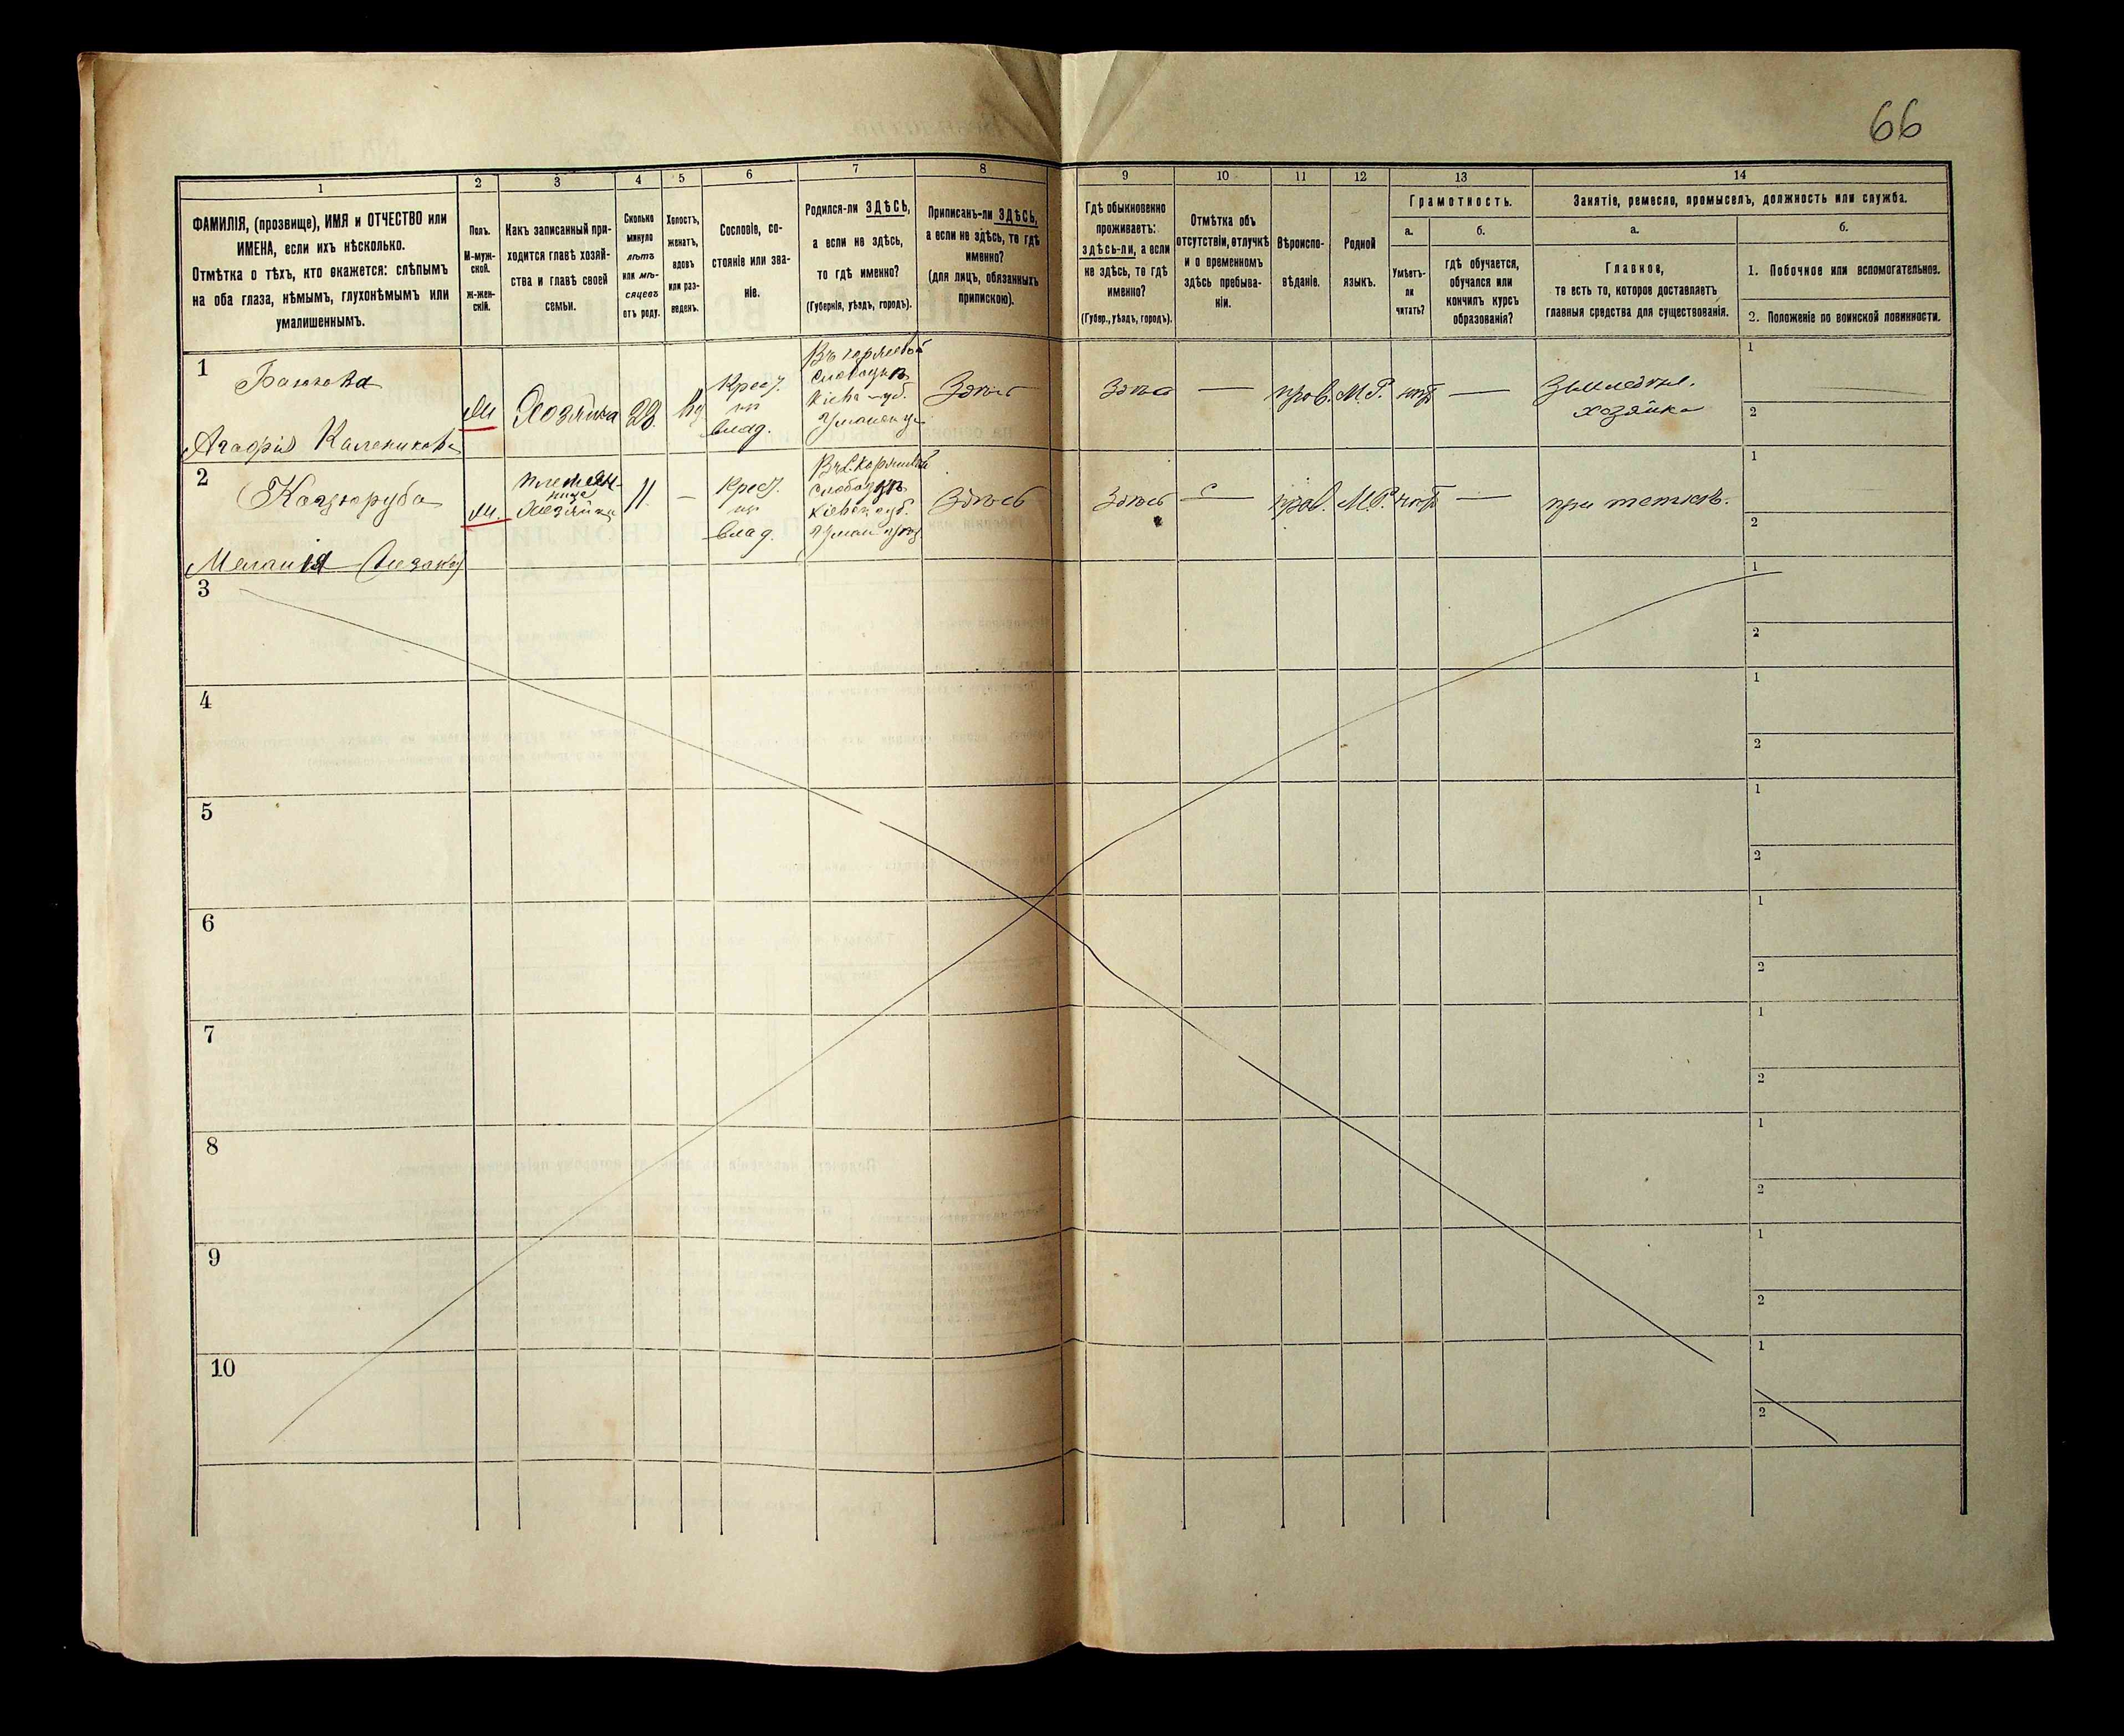 66
1
2
3
4
5
6
7
8
9
10
11
12
13
14
ФАМИЛІЯ, (прозвище), ИМЯ и ОТЧЕСТВО или
ИМЕНА, если ихъ нѣсколько.
Отмѣтка о тѣхъ, кто окажется: слѣпымъ
на оба глаза, нѣмымъ, глухонѣмымъ или
умалишеннымъ.
Полъ.
М-муж-
ской.
Ж-жен-
скій.
Какъ записанный при-
ходится главѣ хозяй-
ства и главѣ своей
семьи.
Сколько
минуло
лѣтъ
или мѣ-
сяцевъ
отъ роду.
Холостъ,
женатъ,
вдовъ
или раз-
веденъ.
Сословіе, со-
стояніе или зва-
ніе.
Родился-ли ЗДѢСЬ,
а если не здѣсь,
то гдѣ именно?
(Губернія, уѣздъ, городъ).
Приписанъ-ли ЗДѢСЬ,
а если не здѣсь, то гдѣ
именно?
(для лицъ, обязанныхъ
припискою).
Гдѣ обыкновенно
проживаетъ:
здѣсь-ли, а если
не здѣсь, то гдѣ
именно?
(Губер., уѣздъ, городъ).
Отмѣтка объ
отсутствіи, отлучкѣ
и о временномъ
здѣсь пребыва-
ніи.
Вѣроиспо-
вѣданіе.
Родной
языкъ.
Грамотность.
а.
Умѣетъ-
ли
читать?
б.
гдѣ обучается,
обучался или
кончилъ курсъ
образованія?
Занятіе, ремесло, промыселъ, должность или служба.
а.
Главное,
то есть то, которое доставляетъ
главныя средства для существованія.
б.
1. Побочное или вспомогательное.
2. Положеніе по воинской повинности.
1
Агафія Каленикова
Хозяйка
28
Крест.
влад.
Здѣсь
Здѣсь
—
прав.
М.Р.
нѣтъ
—
хозяйка
1
2
2
Коцюруба
Меланія
племян-
ница
хозяйки
11
—
Крест.
влад.
Здѣсь
Здѣсь
прав.
М.Р.
нѣтъ
—
при теткѣ.
1
2
3
1
2
4
1
2
5
1
2
6
1
2
7
1
2
8
1
2
9
1
2
10
1
2